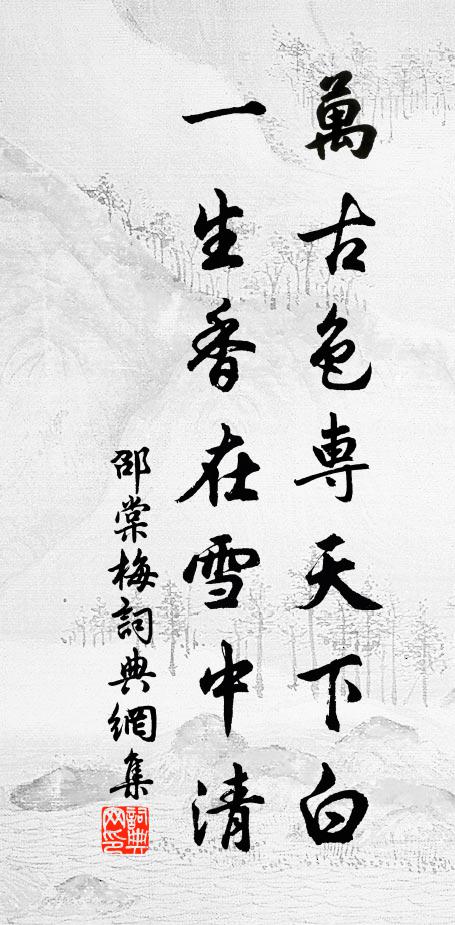 萬古色專天下白
一生香在雪中清
邵棠梅詞典網集
詞典網印